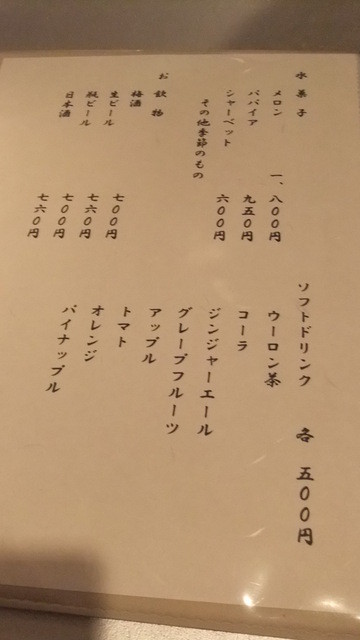 水菓子
メロン 一、八〇〇円
パパイア 九五〇円
シャーベット 六〇〇円
その他季節のもの
お飲物
梅酒 七〇〇円
生ビール 七六〇円
瓶ビール 七〇〇円
日本酒 七六〇円
ソフトドリンク 各 五〇〇円
ウーロン茶
コーラ
ジンジャーエール
グレープフルーツ
アップル
トマト
オレンジ
パイナップル